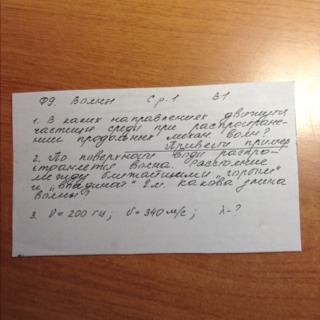 Ф9. Волны С.р.1 В1.
1. В каких направлениях движутся
частицы среды при распростране-
нии продольных механ. волн?
Привести пример
2. По поверхности воды распро-
страняется волна. Расстояние
между ближайшими "горбом"
и "впадиной" 2м. какова длина
волны?
3. ν = 200 гц; v = 340 м/с; λ - ?